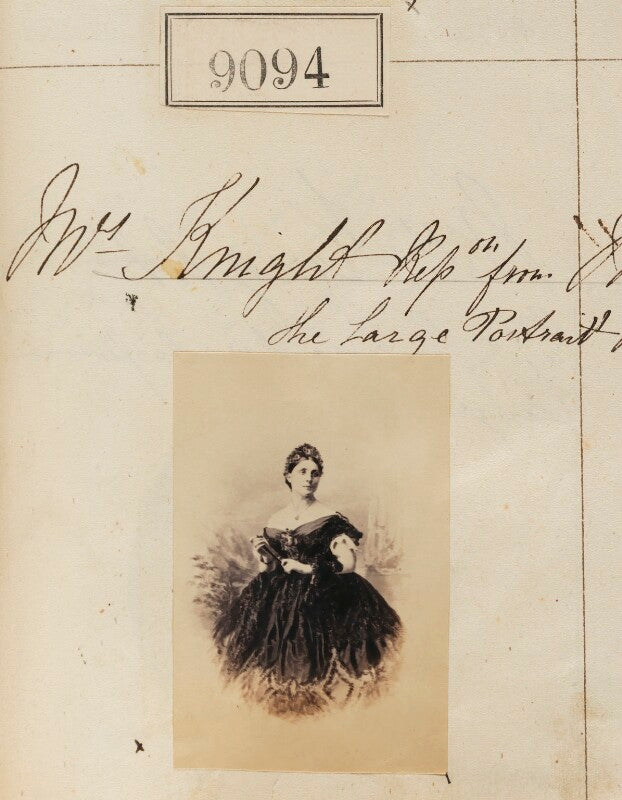 9094
Mrs Knight Repon from
the Large Portrait